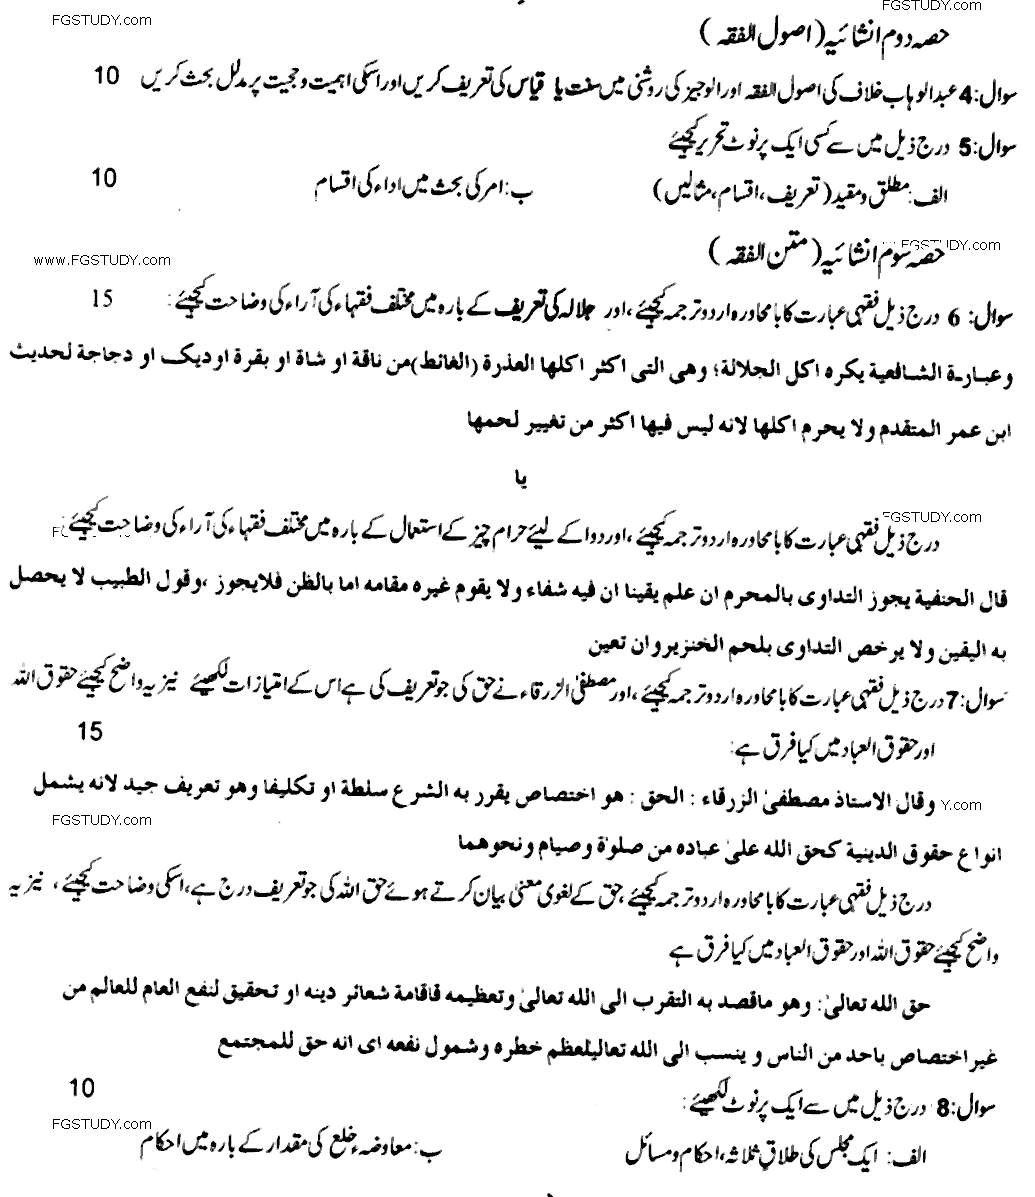 FGSTUDY.com
FGSTUDY.com
حصہ دوم انشائیہ (اصول الفقہ)
سوال:4 عبدالوہاب خلاف کی اصول الفقہ اور الوجیز کی روشنی میں سنت یا قیاس کی تعریف کریں اور اسکی اہمیت و حجیت پر مدلل بحث کریں 10
سوال:5 درج ذیل میں سے کسی ایک پر نوٹ تحریر کیجیئے
الف: مطلق و مقید (تعریف، اقسام، مثالیں) ب: امر کی بحث میں اداء کی اقسام 10
حصہ سوم انشائیہ (متن الفقہ)
FGSTUDY.com
www.FGSTUDY.com
سوال: 6 درج ذیل فقہی عبارت کا بامحاورہ اردو ترجمہ کیجیئے، اور جلالہ کی تعریف کے بارہ میں مختلف فقہاء کی آراء کی وضاحت کیجیئے: 15
وعبارة الشافعية يكره اكل الجلالة؛ وهى التى اكثر اكلها العذرة (الغائط) من ناقة او شاة او بقرة اوديک او دجاجة لحديث
ابن عمر المتقدم ولا يحرم اكلها لانه ليس فيها اكثر من تغيير لحمها
یا
FGSTUDY.com
درج ذیل فقہی عبارت کا بامحاورہ اردو ترجمہ کیجیئے، اور دوا کے لیئے حرام چیز کے استعمال کے بارہ میں مختلف فقہاء کی آراء کی وضاحت کیجیئے:
قال الحنفية يجوز التداوى بالمحرم ان علم يقينا ان فيه شفاء ولا يقوم غيره مقامه اما بالظن فلايجوز ،وقول الطبيب لا يحصل
به اليقين ولا يرخص التداوى بلحم الخنزيروان تعين
سوال:7 درج ذیل فقہی عبارت کا بامحاورہ اردو ترجمہ کیجیئے، اور مصطفیٰ الزرقاء نے حق کی جو تعریف کی ہے اس کے امتیازات لکھیئے نیز یہ واضح کیجیئے حقوق اللہ
اور حقوق العباد میں کیا فرق ہے: 15
وقال الاستاذ مصطفىٰ الزرقاء : الحق : هو اختصاص يقرر به الشرع سلطة او تكليفا وهو تعريف جيد لانه يشمل
Y.com
FGSTUDY.com
انواع حقوق الدينية كحق الله علىٰ عباده من صلوٰة وصيام ونحوهما
درج ذیل فقہی عبارت کا بامحاورہ اردو ترجمہ کیجیئے، حق کے لغوی معنیٰ بیان کرتے ہوئے حق اللہ کی جو تعریف درج ہے، اسکی وضاحت کیجیئے، نیز یہ
واضح کیجیئے حقوق اللہ اور حقوق العباد میں کیا فرق ہے
حق الله تعالىٰ: وهو ماقصد به التقرب الى الله تعالىٰ وتعظيمه قاقامة شعائر دينه او تحقيق لنفع العام للعالم من
غير اختصاص باحد من الناس و ينسب الى الله تعاليلعظم خطره وشمول نفعه اى انه حق للمجتمع
سوال:8 درج ذیل میں سے ایک پر نوٹ لکھیئے: 10
FGSTUDY.com
الف: ایک مجلس کی طلاق ثلاثہ، احکام و مسائل ب: معاوضہء خلع کی مقدار کے بارہ میں احکام